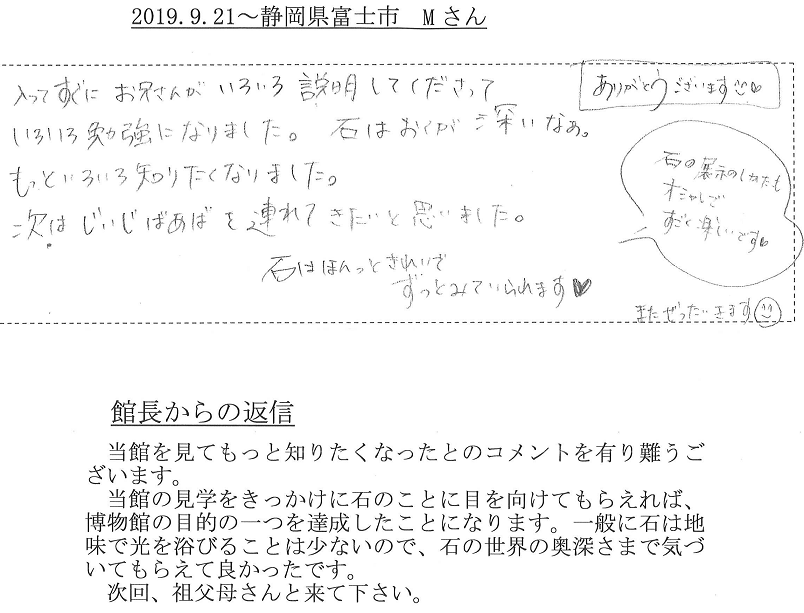 2019.9.21～静岡県富士市　Mさん
入ってすぐに お兄さんが いろいろ 説明してくださって
いろいろ勉強になりました。 石はおくが深いなぁ。
もっといろいろ知りたくなりました。
次は じいじばあばを連れてきたいと思いました。
石はほんっときれいで
ずっとみていられます♥
ありがとうございます♡
石の展示のしかたも
オシャレで
すごく楽しいです♡
またぜったいきます
館長からの返信
当館を見てもっと知りたくなったとのコメントを有り難うご
ざいます。
当館の見学をきっかけに石のことに目を向けてもらえれば、
博物館の目的の一つを達成したことになります。一般に石は地
味で光を浴びることは少ないので、石の世界の奥深さまで気づ
いてもらえて良かったです。
次回、祖父母さんと来て下さい。